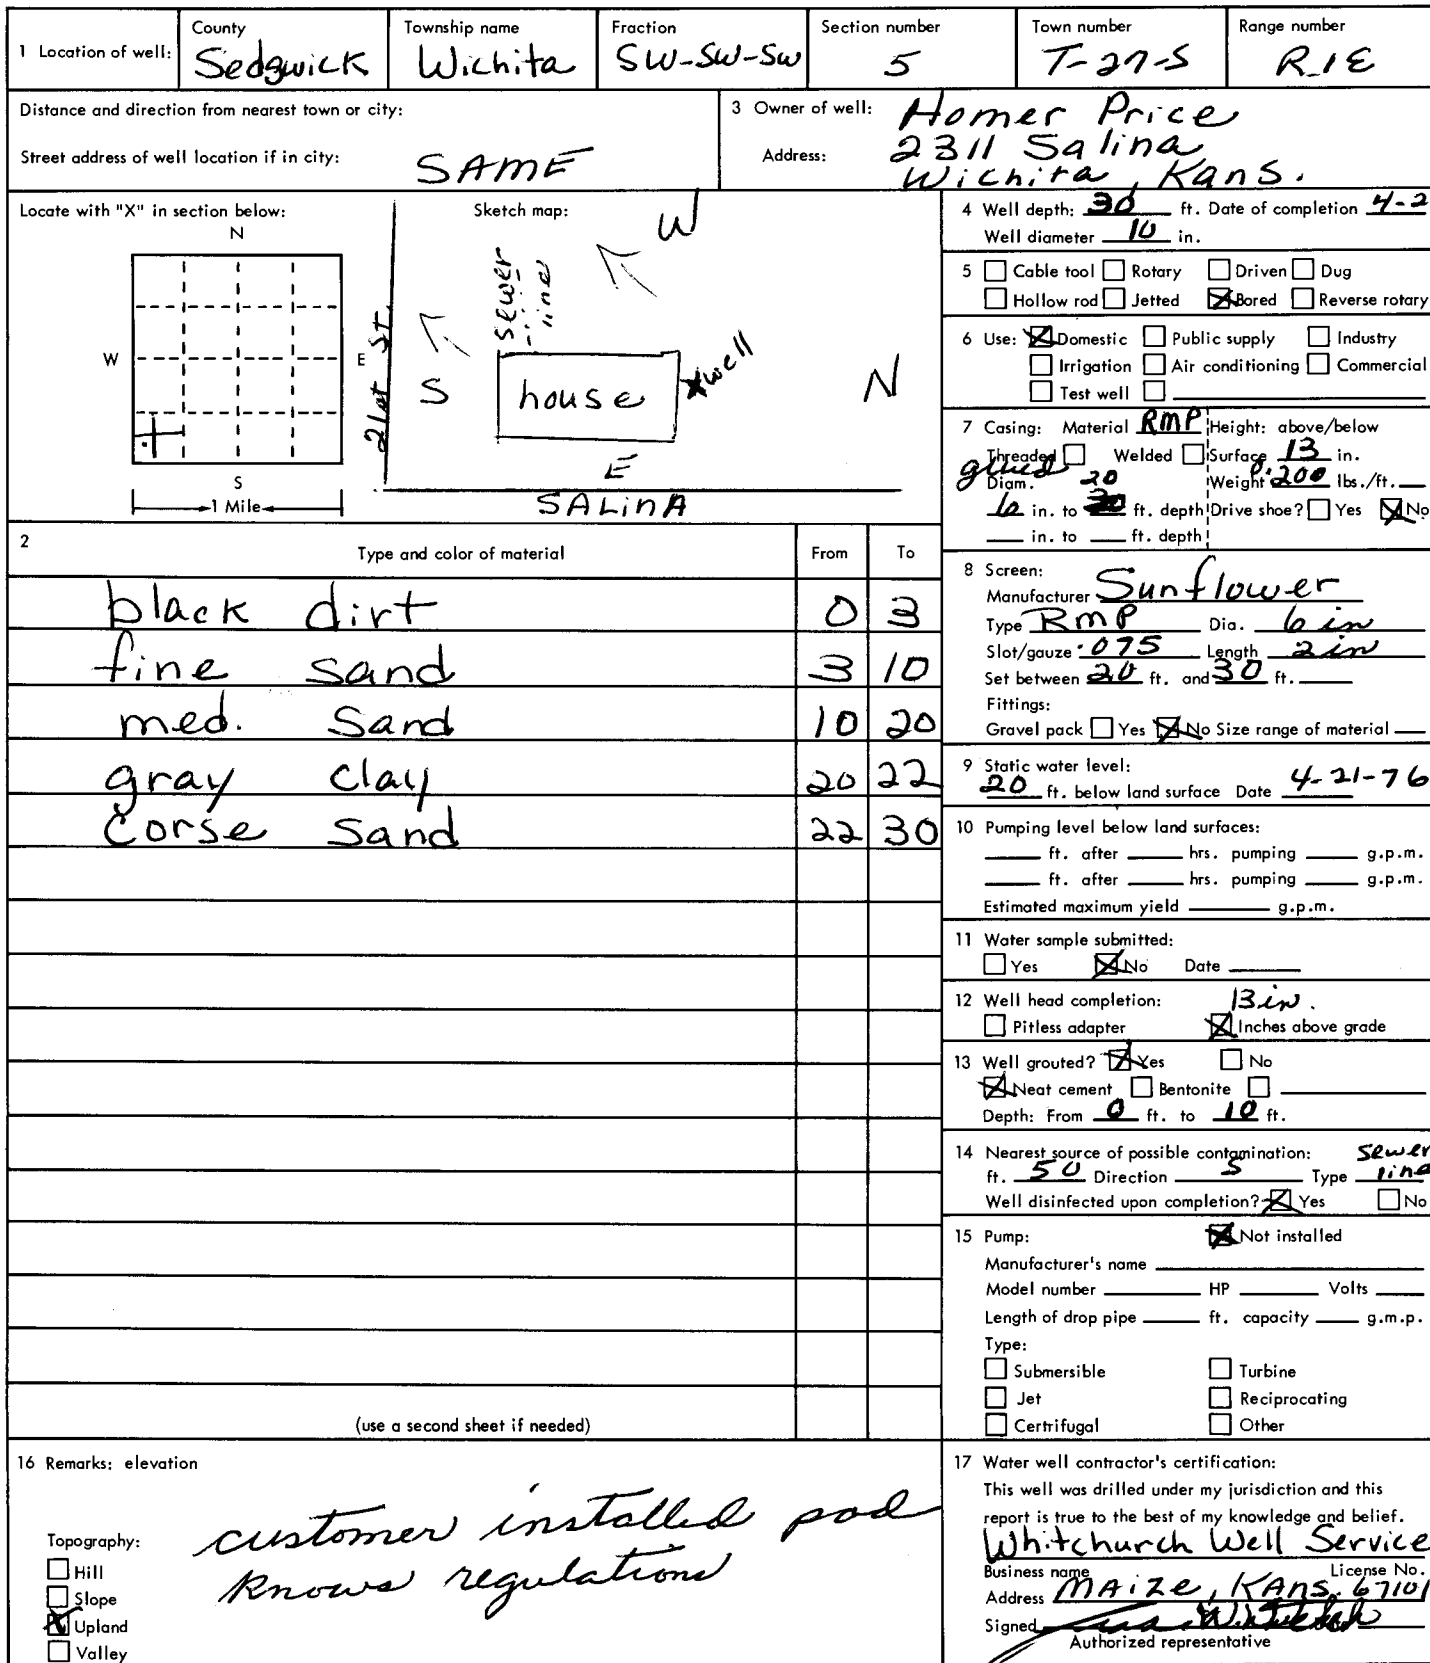 1 Location of well: County Sedgwick Township name Wichita Fraction SW-SW-SW Section number 5 Town number T-27-S Range number R1E
Distance and direction from nearest town or city:
Street address of well location if in city: SAME
3 Owner of well: Homer Price
Address: 2311 Salina
Wichita, Kans.
Locate with "X" in section below:
N
W
E
S
1 Mile
Sketch map:
W
sewer line
21st St.
S
house
x well
N
E
SALinA
2
Type and color of material From To
black dirt 0 3
fine sand 3 10
med. Sand 10 20
gray clay 20 22
Corse Sand 22 30
(use a second sheet if needed)
4 Well depth: 30 ft. Date of completion 4-2
Well diameter 10 in.
5 Cable tool Rotary Driven Dug
Hollow rod Jetted Bored Reverse rotary
6 Use: Domestic Public supply Industry
Irrigation Air conditioning Commercial
Test well
7 Casing: Material RMP Height: above/below
Threaded Welded Surface 13 in.
glued
Diam. 20 Weight 0.200 lbs./ft.
6 in. to ft. depth Drive shoe? Yes No
in. to ft. depth
8 Screen:
Manufacturer Sunflower
Type RMP Dia. 6 in
Slot/gauze .075 Length 2 in
Set between 20 ft. and 30 ft.
Fittings:
Gravel pack Yes No Size range of material
9 Static water level:
20 ft. below land surface Date 4-21-76
10 Pumping level below land surfaces:
ft. after hrs. pumping g.p.m.
ft. after hrs. pumping g.p.m.
Estimated maximum yield g.p.m.
11 Water sample submitted:
Yes No Date
12 Well head completion: 13 in.
Pitless adapter Inches above grade
13 Well grouted? Yes No
Neat cement Bentonite
Depth: From 0 ft. to 10 ft.
14 Nearest source of possible contamination: sewer
ft. 50 Direction S Type line
Well disinfected upon completion? Yes No
15 Pump: Not installed
Manufacturer's name
Model number HP Volts
Length of drop pipe ft. capacity g.m.p.
Type:
Submersible Turbine
Jet Reciprocating
Certrifugal Other
16 Remarks: elevation
customer installed pad
Knows regulations
Topography:
Hill
Slope
Upland
Valley
17 Water well contractor's certification:
This well was drilled under my jurisdiction and this
report is true to the best of my knowledge and belief.
Whitchurch Well Service
Business name License No.
Address MAIZE, KANS. 67101
Signed
Authorized representative